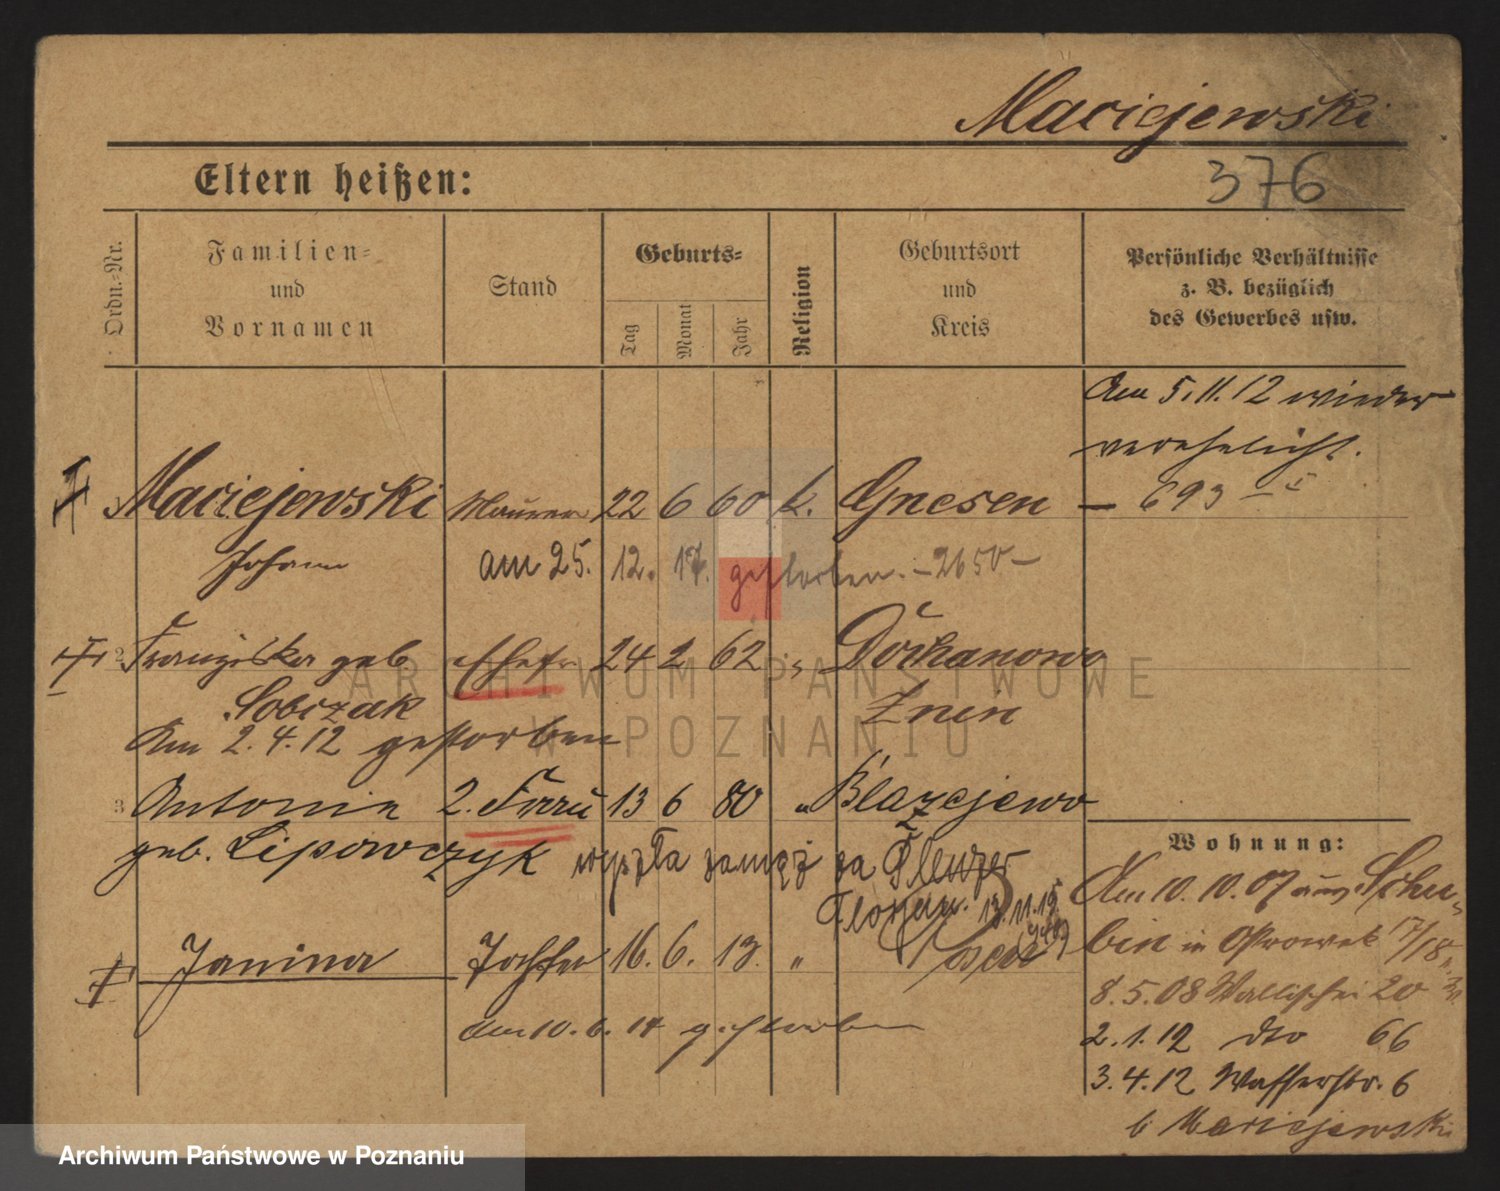 Maciejewski
376
Eltern heißen:
Ordn.-Nr.
Familien-
und
Vornamen
Stand
Geburts-
Tag
Monat
Jahr
Religion
Geburtsort
und
Kreis
Persönliche Verhältnisse
z. B. bezüglich
des Gewerbes usw.
Am 5.11.12 wieder
verehelicht.
— 693 —
Maciejewski Maurer 22 6 60 k. Gnesen
Johann am 25. 12. 17. gestorben. – 2650 –
2 Franziska geb. Ehefr 24 2 62 "
Sobczak Znin
Am 2.4.12 gestorben
3 Antonie 2. Frau 13 6 80 " Blazejewo
geb. Lipowczyk wyszła zamąż za
Florjan. 13.11.19
Janina Tochter 16. 6. 13. "
am 10.6.14 gestorben
Wohnung:
Am 10.10.07 aus Schu-
bin in Ostrowek 17/18
8.5.08 Wallischei 20
2.1.12 dto 66
3.4.12 Wasserstr. 6
b Maciejewski
ARCHIWUM PAŃSTWOWE
W POZNANIU
Archiwum Państwowe w Poznaniu